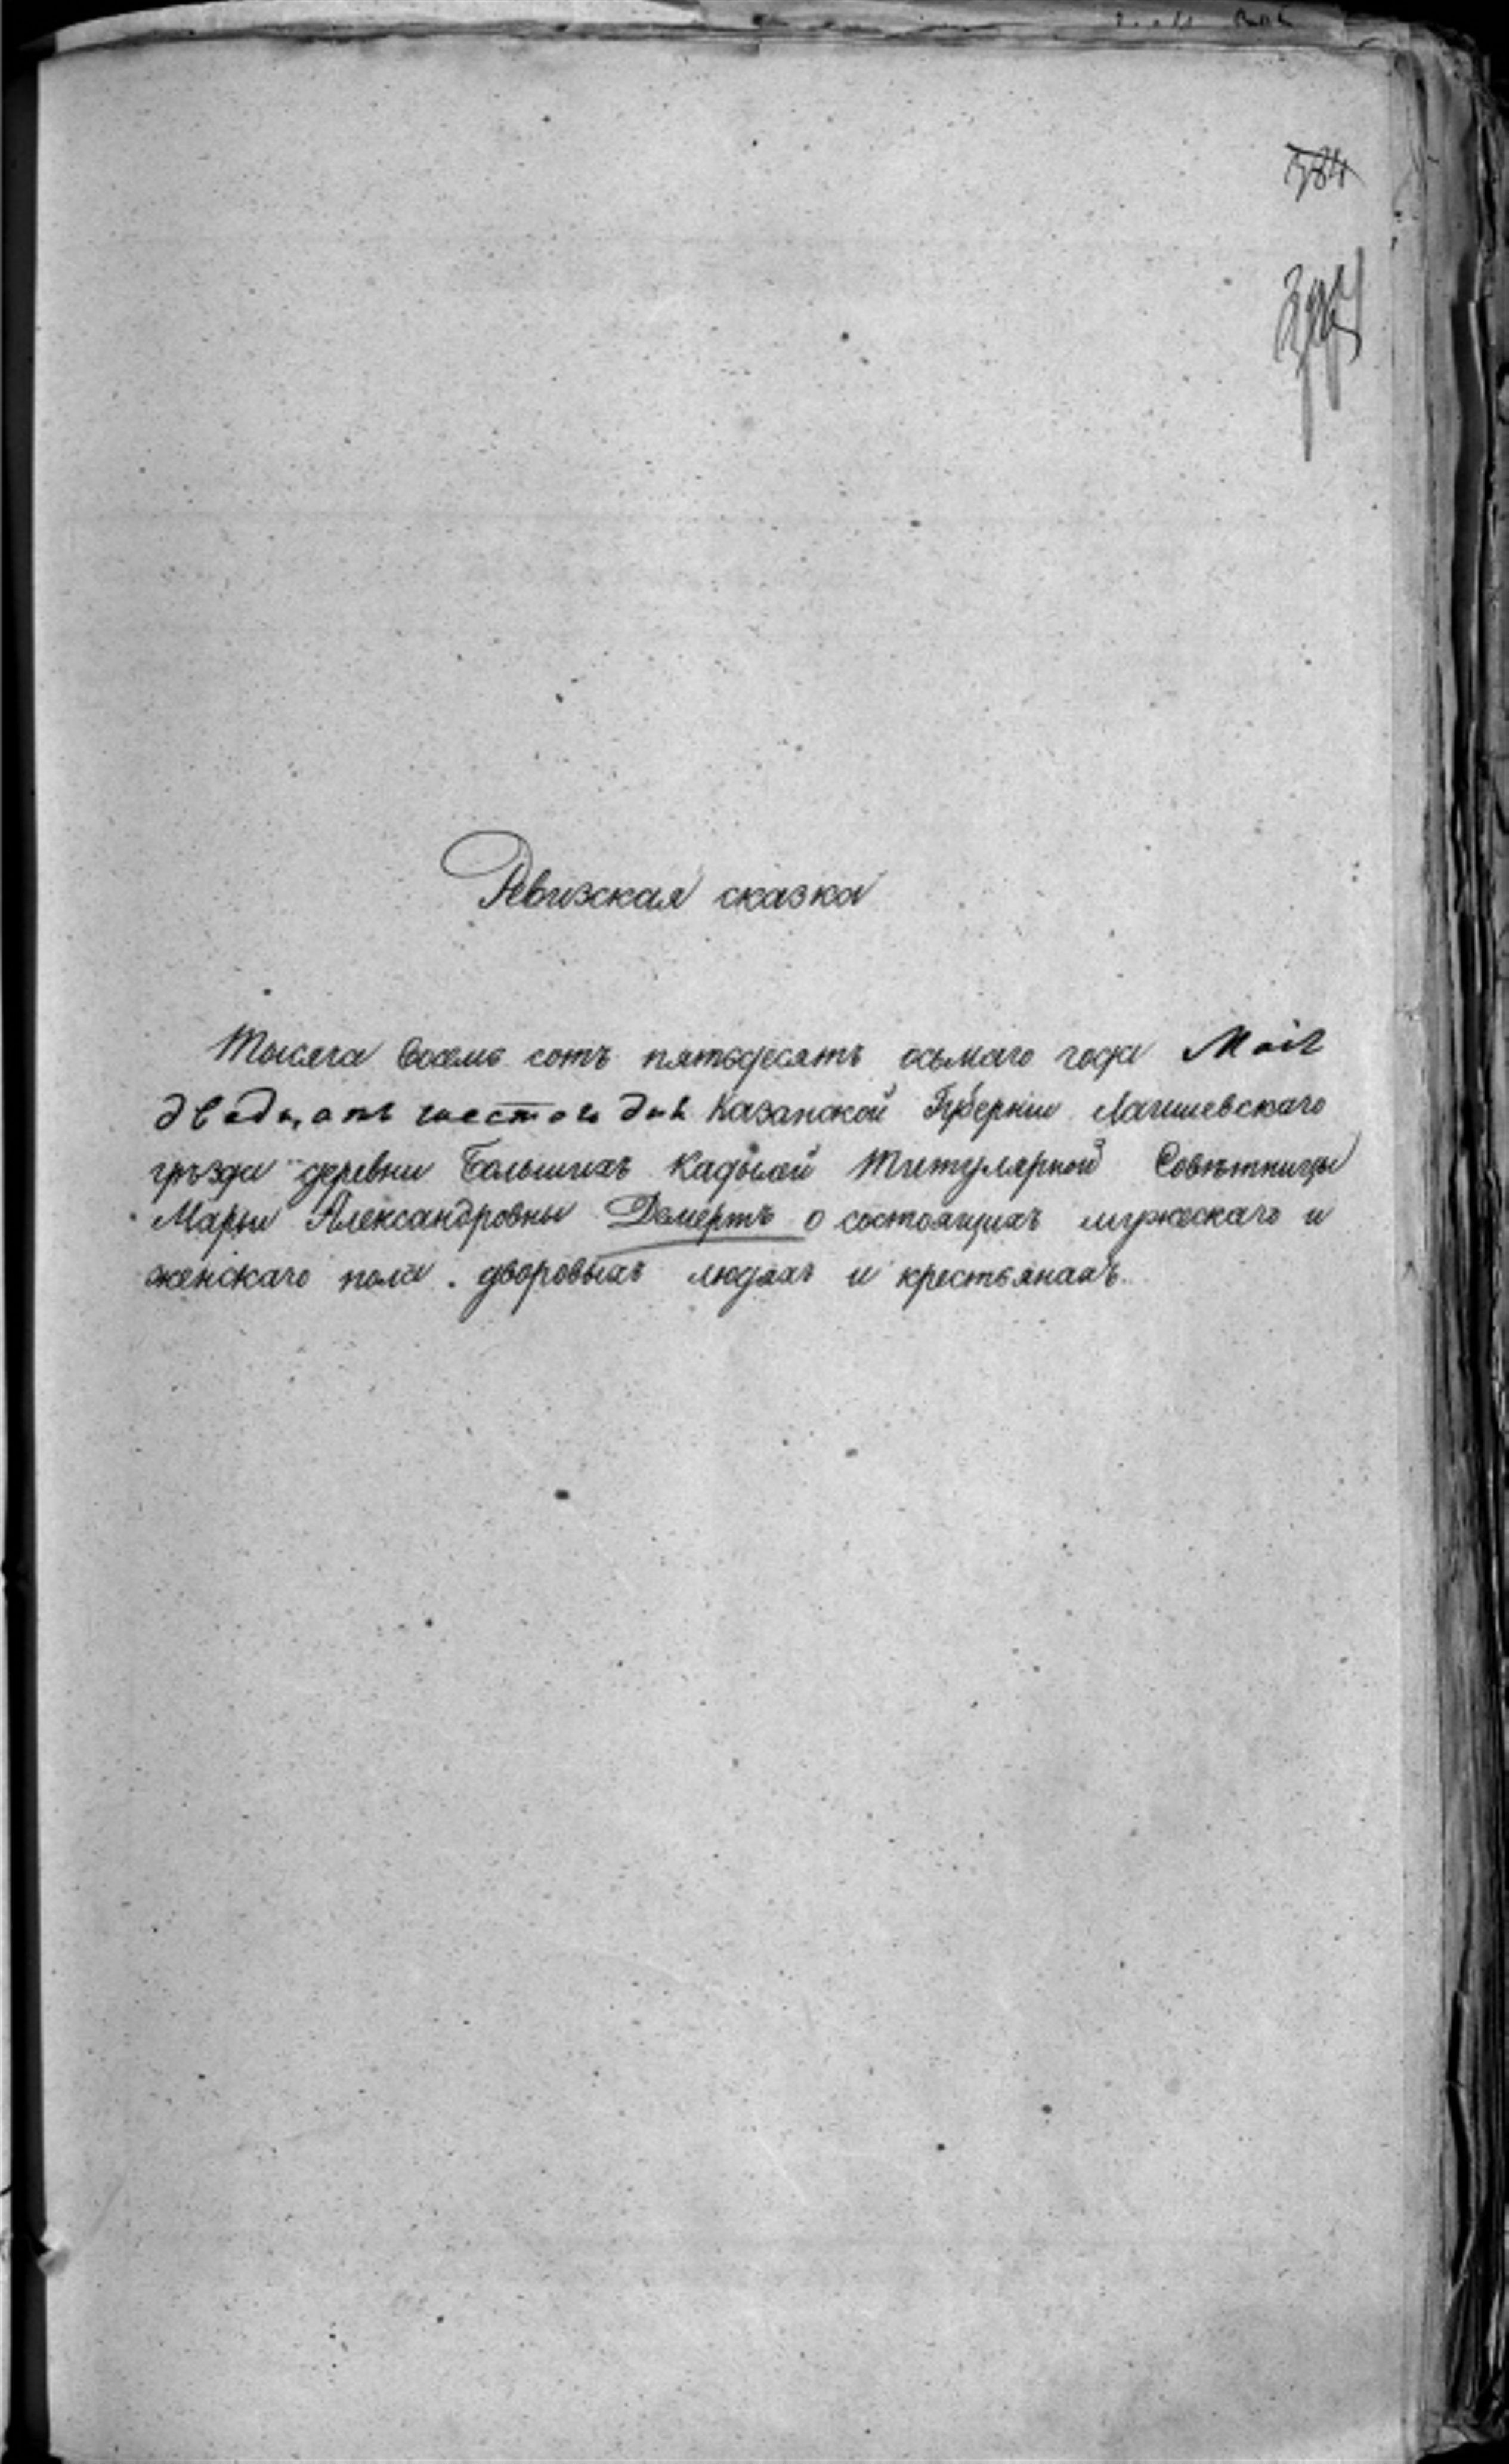 584
Ревизская сказка
Тысяча восемь сотъ пятьдесятъ осьмаго года Маія
двадцать шестого дня Казанской Губерніи Лаишевскаго
уѣзда деревни Большихъ Кадылей Титулярной Совѣтницы
Марьи Александровны Демертъ о состоящихъ мужескаго и
женскаго пола дворовыхъ людяхъ и крестьянахъ.